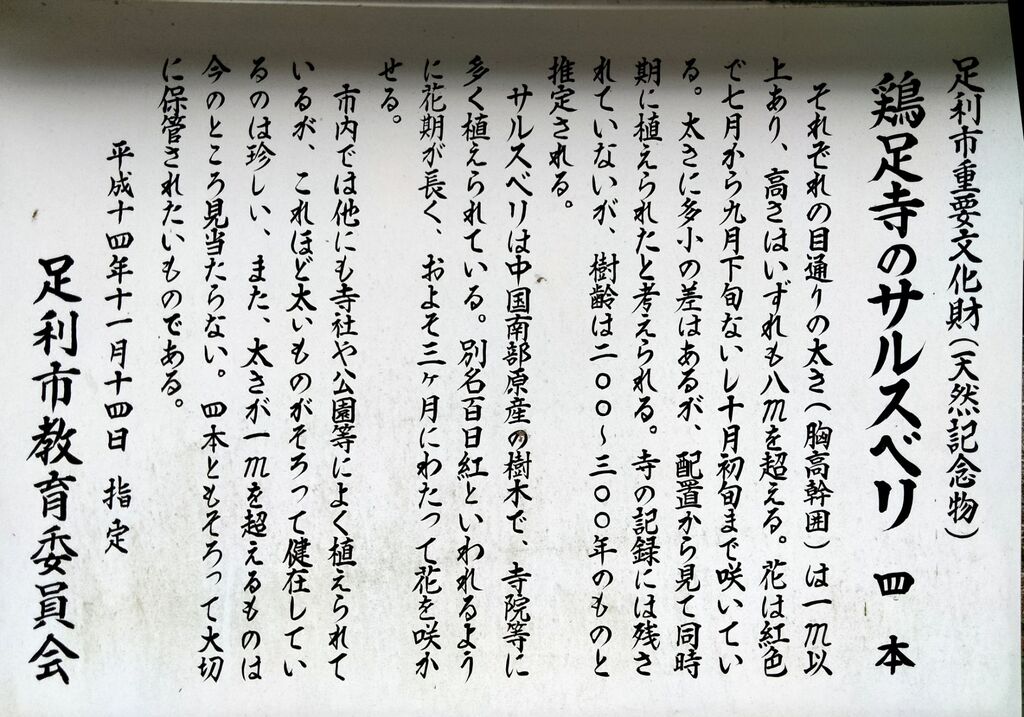 足利市重要文化財(天然記念物)
鶏足寺のサルスベリ 四本
それぞれの目通りの太さ(胸高幹囲)は一m以
上あり、高さはいずれも八mを超える。花は紅色
で七月から九月下旬ないし十月初旬まで咲いてい
る。太さに多小の差はあるが、配置から見て同時
期に植えられたと考えられる。寺の記録には残さ
れていないが、樹齢は二〇〇~三〇〇年のものと
推定される。
サルスベリは中国南部原産の樹木で、寺院等に
多く植えられている。別名百日紅といわれるよう
に花期が長く、およそ三ヶ月にわたって花を咲か
せる。
市内では他にも寺社や公園等によく植えられて
いるが、これほど太いものがそろって健在してい
るのは珍しい、また、太さが一mを超えるものは
今のところ見当たらない。四本ともそろって大切
に保管されたいものである。
平成十四年十一月十四日 指定
足利市教育委員会